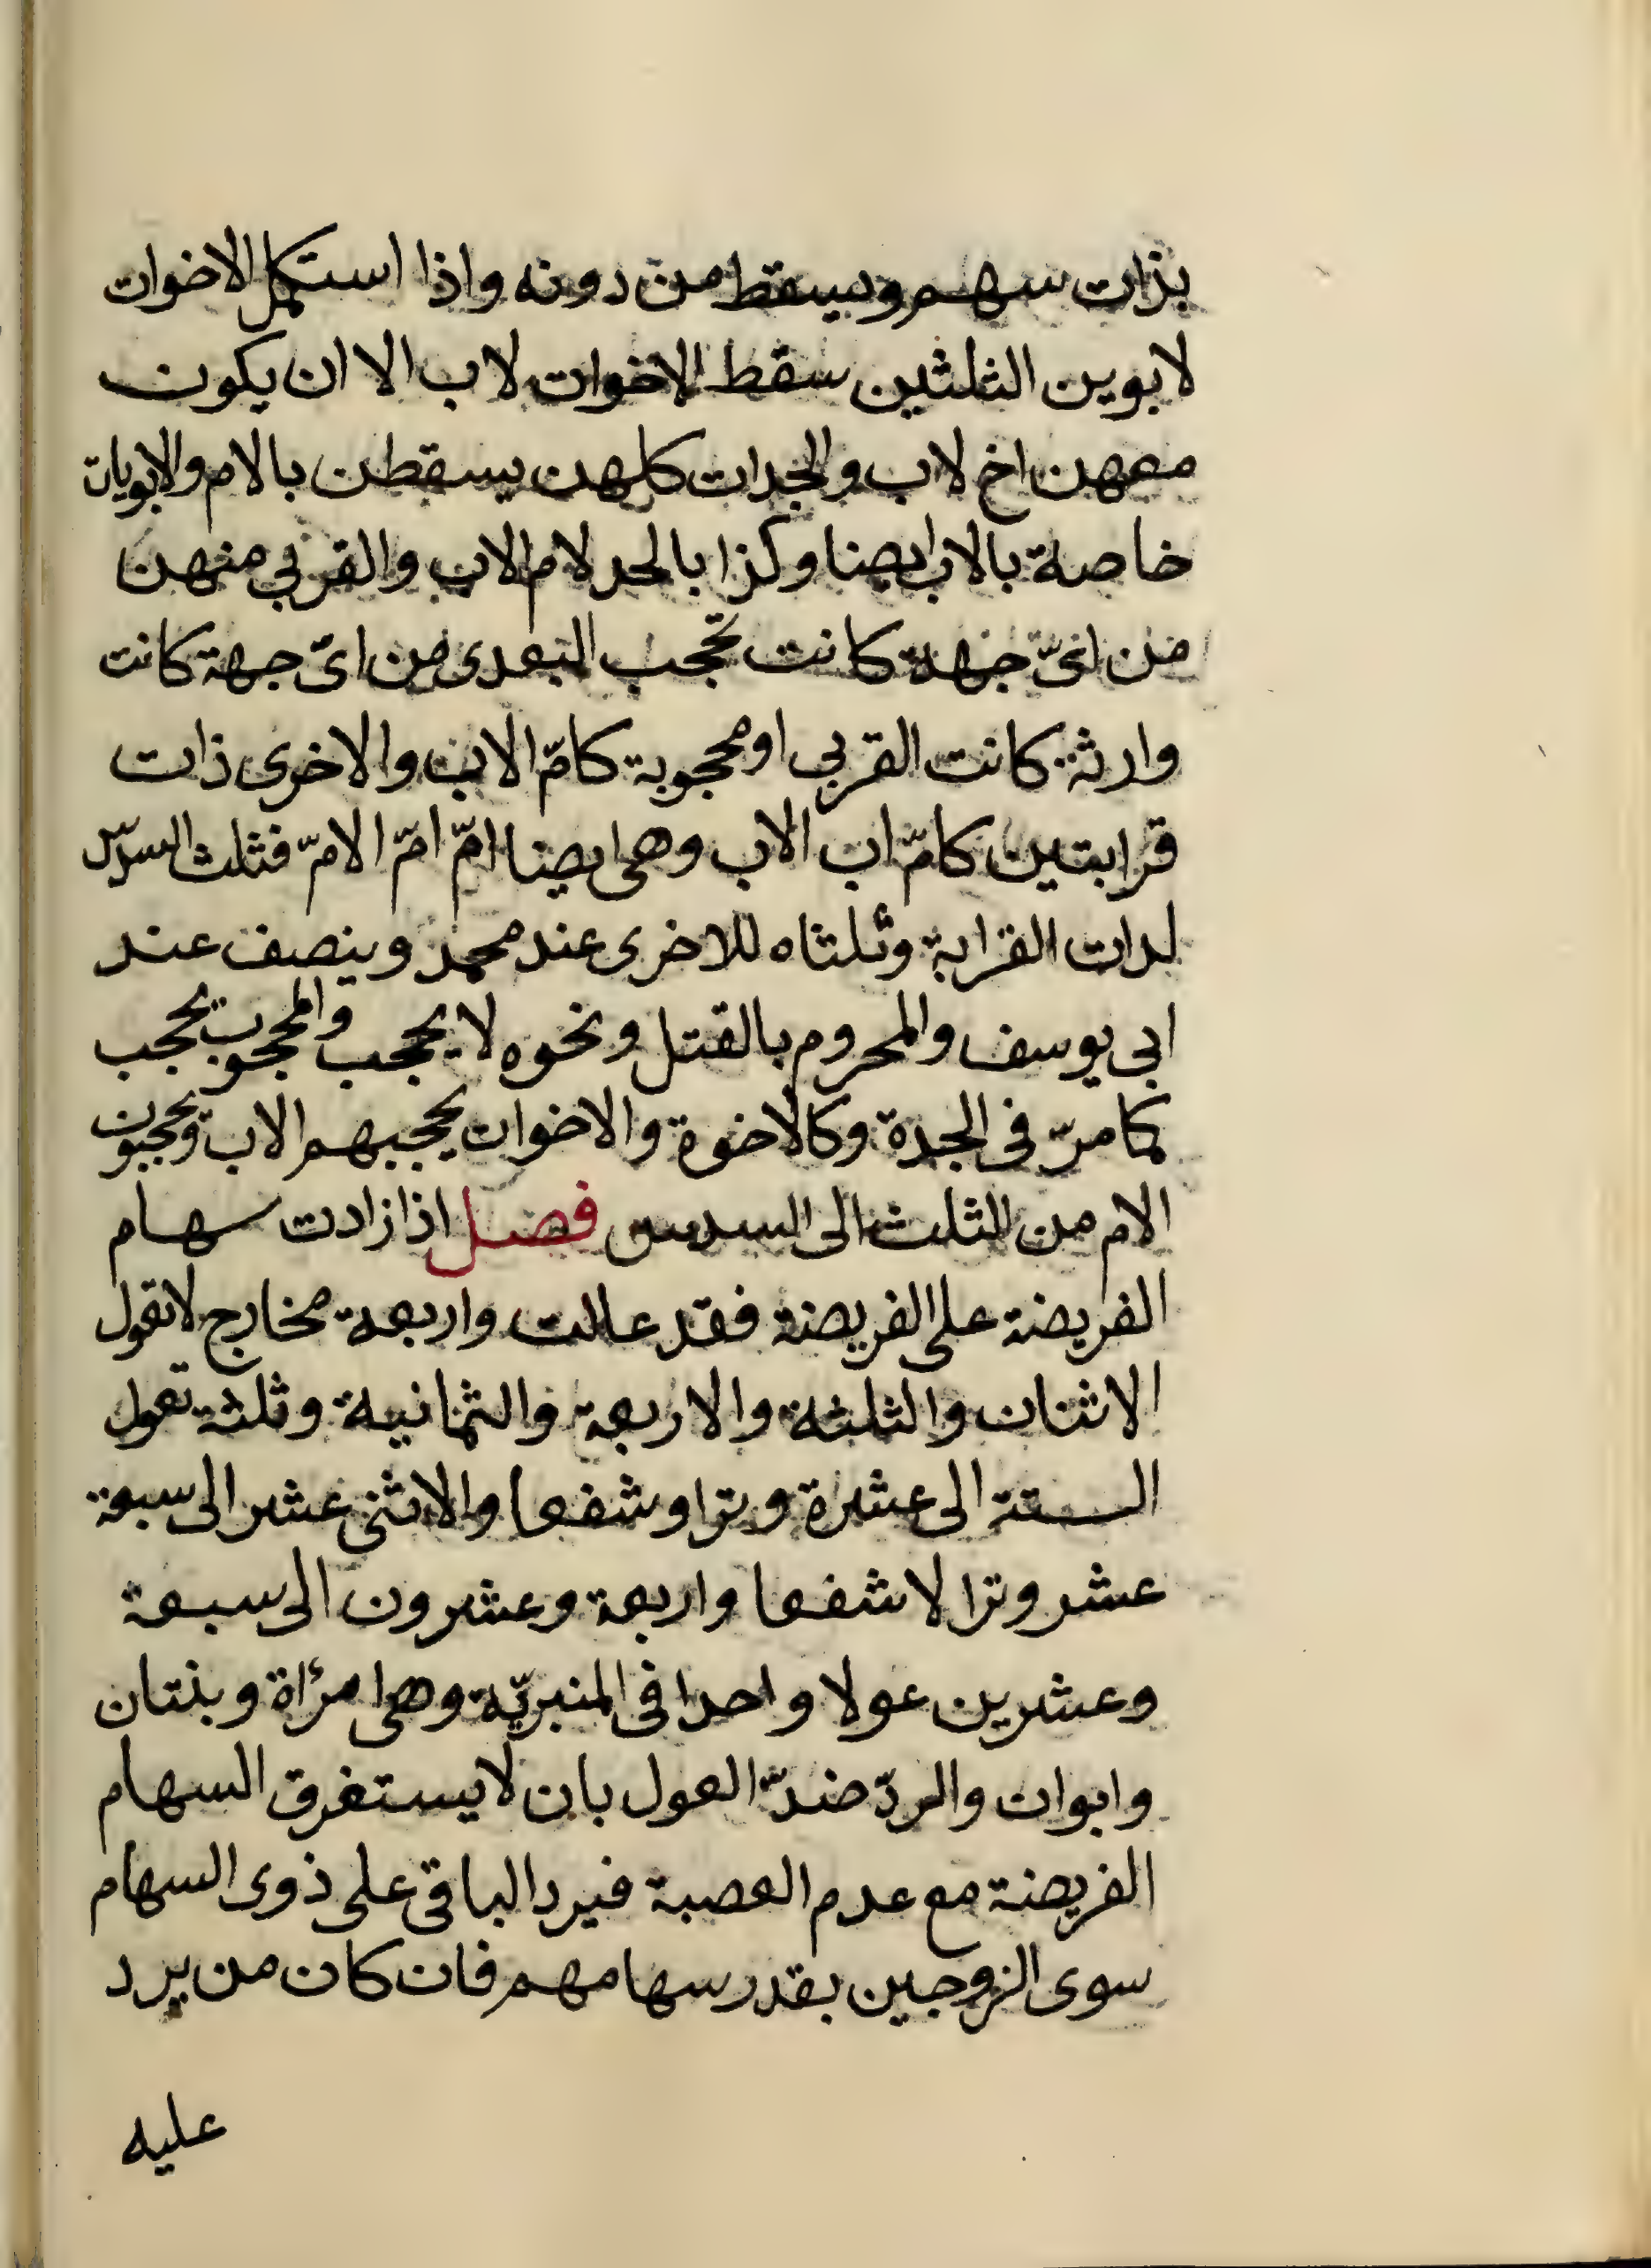 بذات سهم ويسقط من دونه واذا استكمل الاخوات
لابوين الثلثين سقط الاخوات لاب الا ان يكون
معهن اخ لاب والجدات كلهن يسقطن بالام والابويات
خاصة بالاب ايضا وكذا بالجد لا ام الاب والقربي منهن
من ايّ جهة كانت تحجب البعدى من ايّ جهة كانت
وارثة كانت القربي او محجوبة كامّ الاب والاخرى ذات
قرابتين كامّ اب الاب وهى ايضا امّ امّ الامّ فثلث السدس
لذات القرابة وثلثاه للاخرى عند محمد وينصف عند
ابى يوسف والمحروم بالقتل ونحوه لا يحجب والمحجوب يحجب
كما مرّ فى الجدة وكالاخوة والاخوات يحجبهم الاب ويحجبون
الام من الثلث الى السدس فصل اذا زادت سهام
الفريضة على الفريضة فقد عالت واربعة مخارج لا تعول
الاثنان والثلثة والاربعة والثمانية وثلثة تعول
الستة الى عشرة وترا وشفعا والاثنى عشر الى سبعة
عشر وترا لا شفعا واربعة وعشرون الى سبعة
وعشرين عولا واحدا فى المنبريّة وهى امرأة وبنتان
وابوان والردّ ضدّ العول بان لا يستغرق السهام
الفريضة مع عدم العصبة فيرد الباقى على ذوى السهام
سوى الزوجين بقدر سهامهم فان كان من يرد
عليه